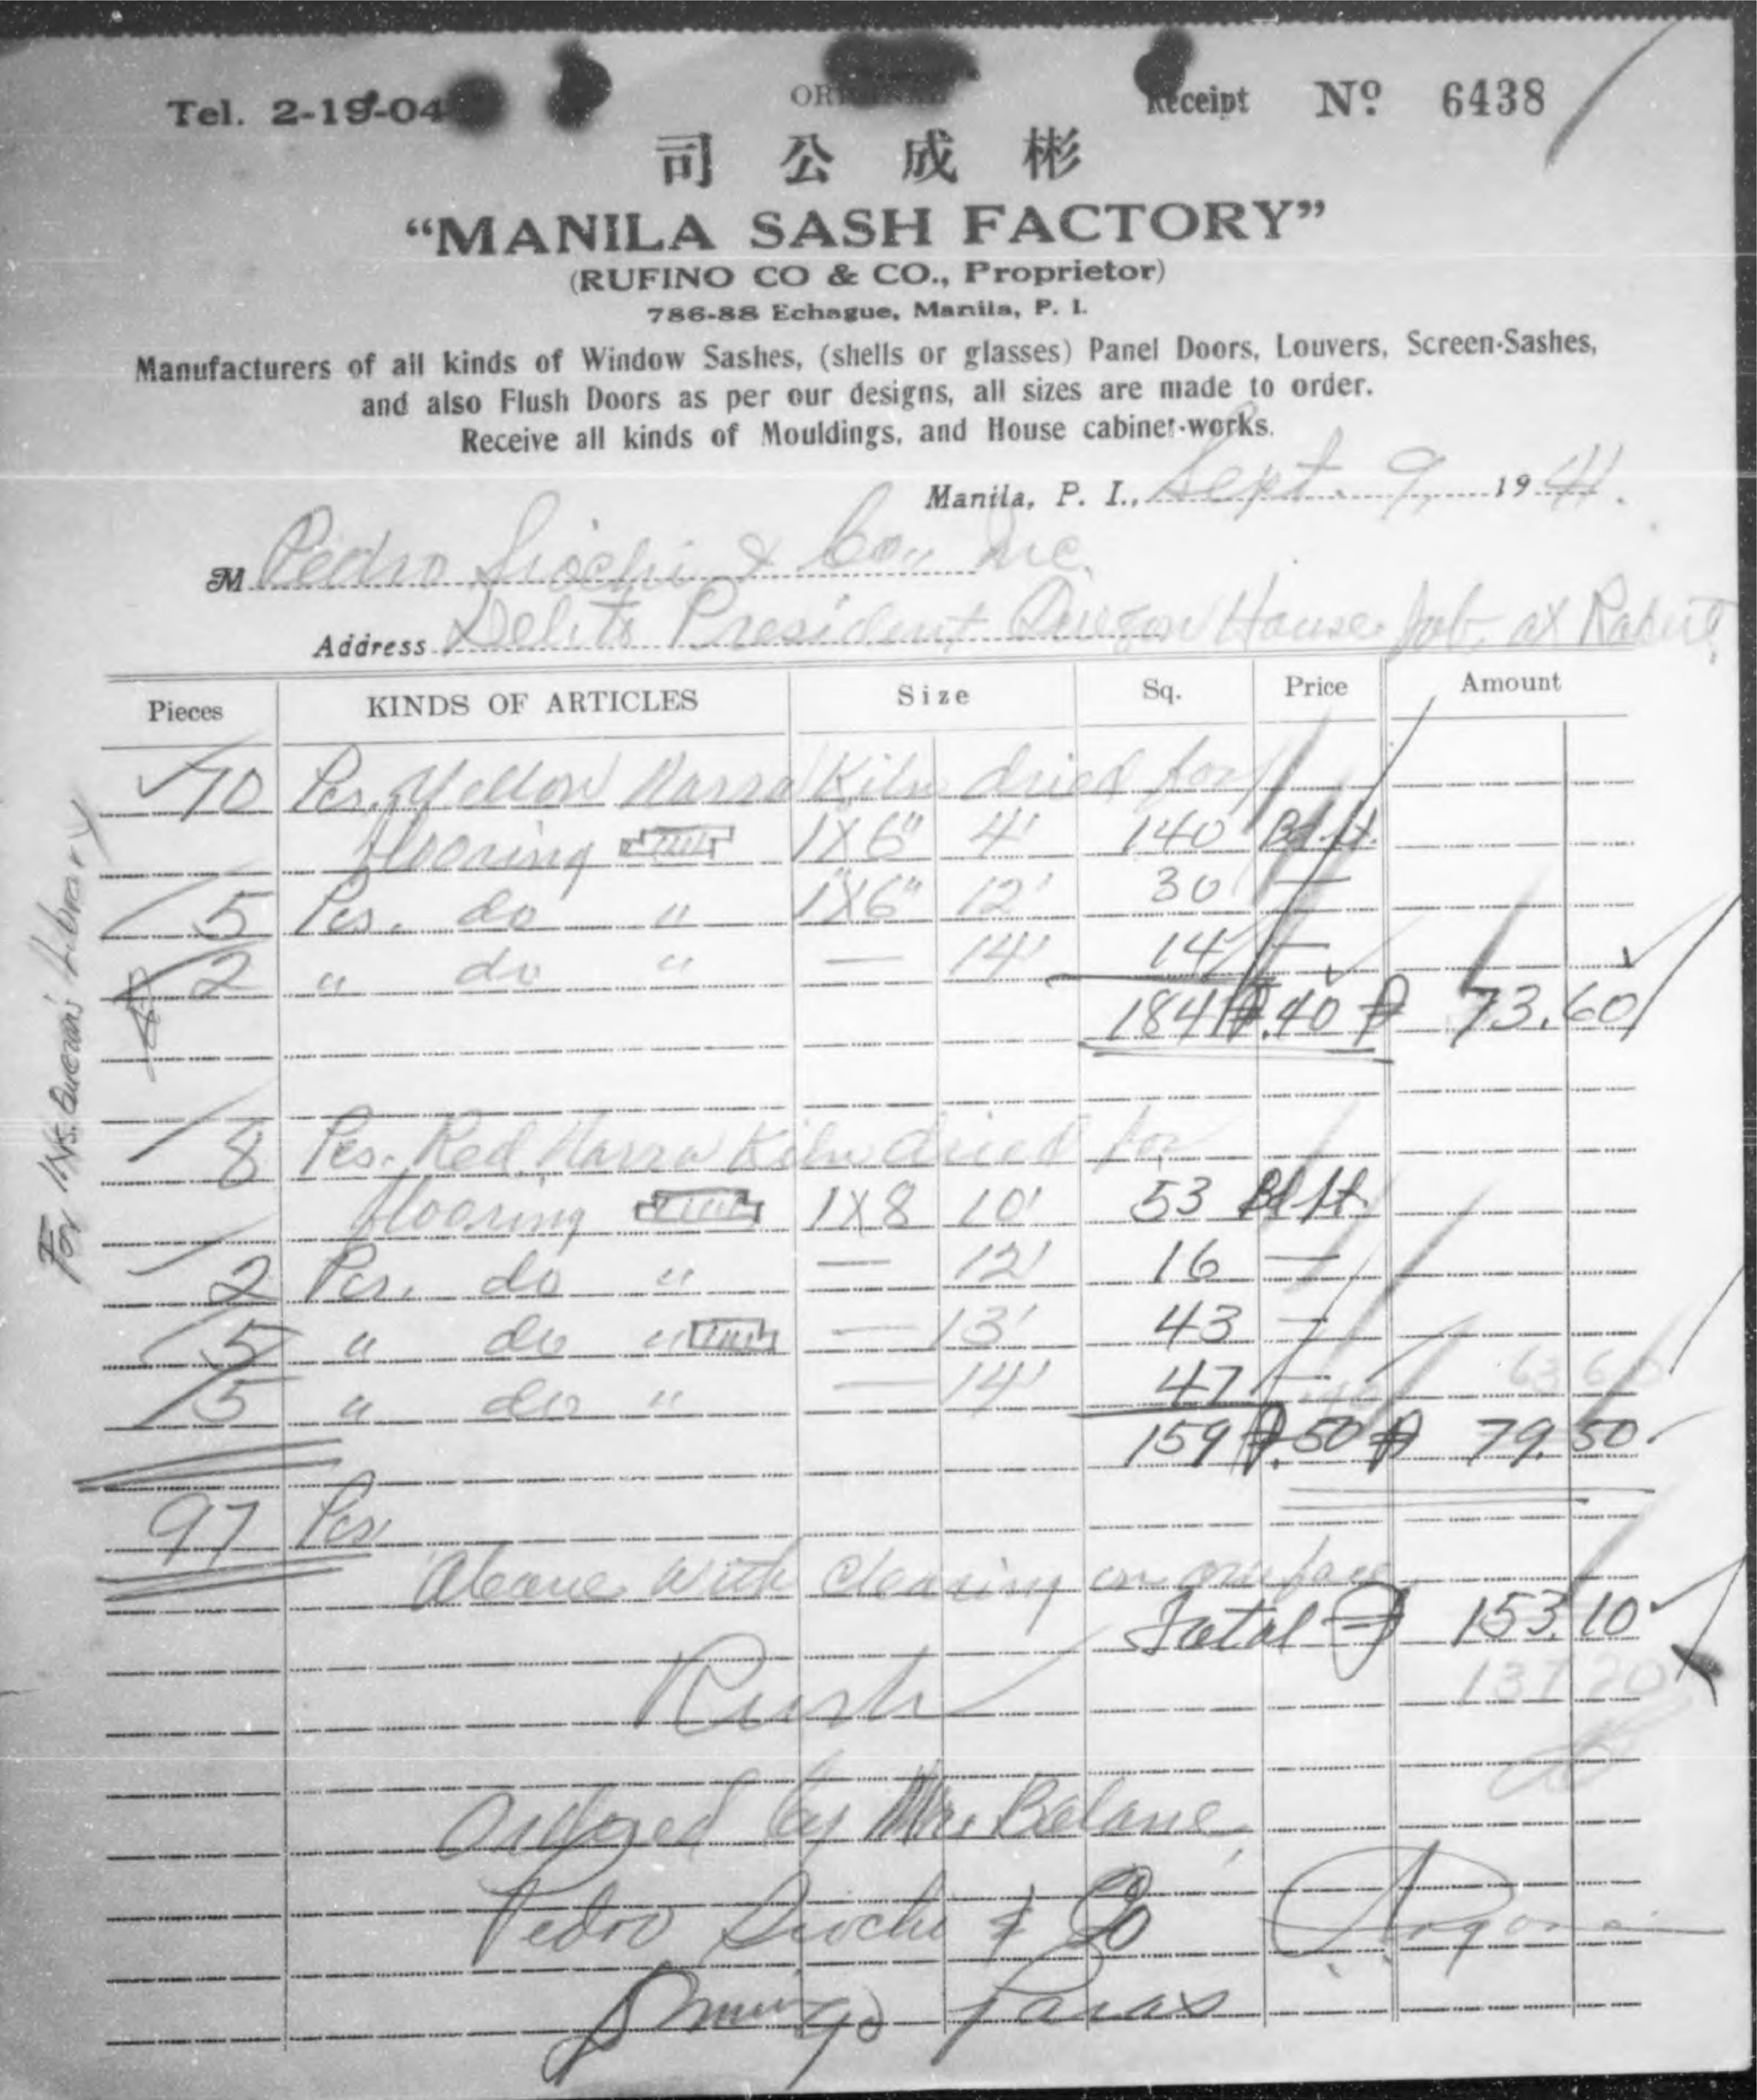 Tel. 2-19-04 ORIGINAL Receipt Nº 6438
司公成彬
“MANILA SASH FACTORY”
(RUFINO CO & CO., Proprietor)
786-88 Echague, Manila, P. I.
Manufacturers of all kinds of Window Sashes, (shells or glasses) Panel Doors, Louvers, Screen-Sashes,
and also Flush Doors as per our designs, all sizes are made to order.
Receive all kinds of Mouldings, and House cabinet-works.
Manila, P. I., Sept. 9, 1941.
M Pedro Siochi & Co., Inc.
Address Del. to President Quezon House Job. at
Pieces KINDS OF ARTICLES Size Sq. Price Amount
70 Pcs. Yellow Narra Kiln dried for
flooring 1X6" 4' 140 Bd.ft.
5 Pcs. do " 1"X6" 12' 30 —
2 " do " — 14' 14 —
184 ₱.40 ₱ 73.60
8 Pcs. Red Narra Kiln dried for
flooring 1X8 10' 53 Bd.ft.
2 Pcs. do " — 12' 16 —
5 " do " — 13' 43 —
5 " do " — 14' 47 —
63 60
159 ₱.50 ₱ 79.50
97 Pcs.
Above with cleaning on
Total ₱ 153.10
137 20
Rush
Ordered by Mr.
Pedro Siochi & Co
Domingo Paras
For Mrs. Quezon's Library